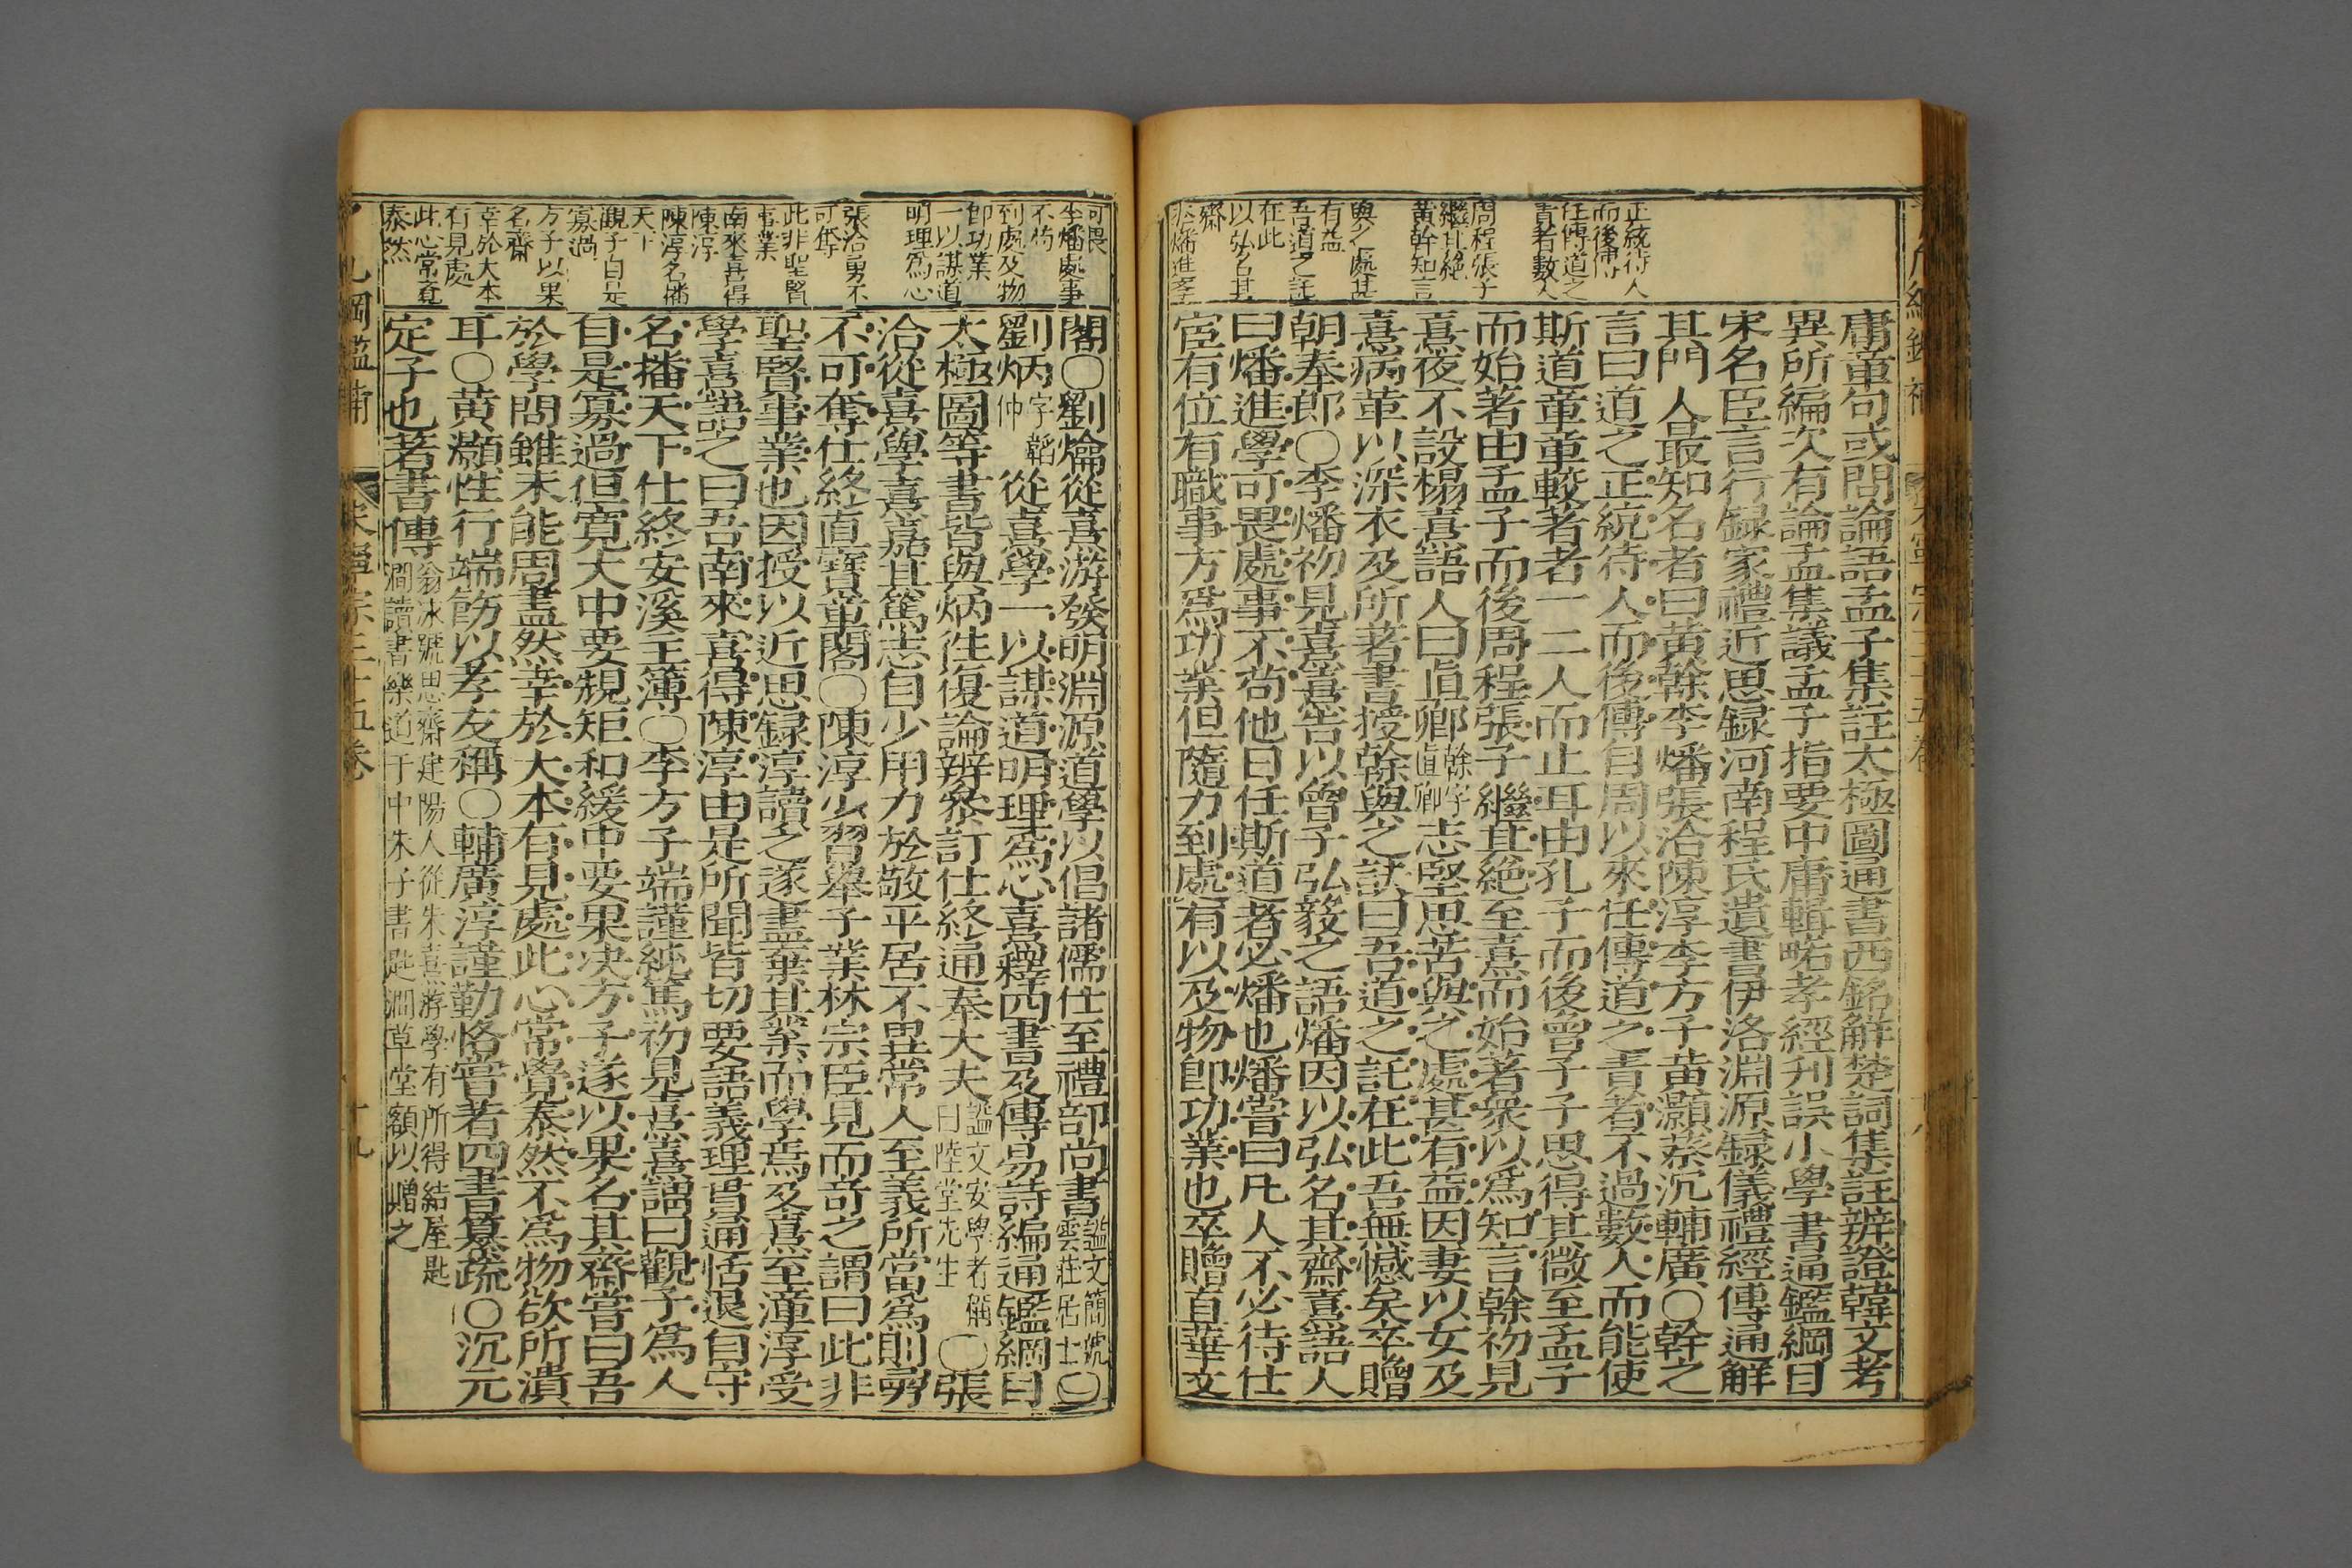 庸章句或問論語孟子集註太極圖通書西銘解楚詞集註辨證韓文考
異所編次有論孟集議孟子指要中庸輯略孝經刋誤小學書通鑑綱目
宋名臣言行録家禮近思録河南程氏遺書伊洛淵源録儀禮經傳通解
其門人最知名者曰黃榦李燔張洽陳淳李方子黃灝蔡沉輔廣○幹之
言曰道之正統待人而後傳自周以來任傳道之責者不過數人而能使
斯道章章較著者一二人而止耳由孔子而後曾子子思得其微至孟子
而始著由孟子而後周程張子繼其絶至熹而始著衆以爲知言榦初見
熹夜不設榻熹語人曰眞卿榦字眞卿志堅思苦與之處甚有益因妻以女及
熹病革以深衣及所著書授榦與之訣曰吾道之託在此吾無憾矣卒贈
朝奉郎○李燔初見熹熹告以曾子弘毅之語燔因以弘名其齋熹語人
曰燔進學可畏處事不苟他日任斯道者必燔也燔嘗曰凡人不必待仕
宦有位有職事方爲功業但隨力到處有以及物卽功業也卒贈直華文
正統待人
而後傳
任傳道之
責者數人
周程張子
繼其絶
黃榦知言
與之處甚
有益
吾道之託
在此
以弘名其
齋
李燔進學
閣○劉爚從熹游發明淵源道學以倡諸儒仕至禮部尚書諡文簡號雲莊居士○
劉炳字韜仲從熹學一以謀道明理爲心熹釋四書及傳易詩編通鑑綱目
太極圖等書皆與炳徃復論辨參訂仕終通奉大夫諡文安學者稱曰睦堂先生○張
洽從熹學熹嘉其篤志自少用力於敬平居不異常人至義所當爲則勇
不可奪仕終直寶章閣○陳淳少習舉子業林宗臣見而竒之謂曰此非
聖賢事業也因授以近思録淳讀之遂盡棄其業而學焉及熹至漳淳受
學熹語之曰吾南來喜得陳淳由是所聞皆切要語義理貫通恬退自守
名播天下仕終安溪主簿○李方子端謹純篤初見熹熹謂曰觀子爲人
自是寡過但寛大中要規矩和緩中要果決方子遂以果名其齋嘗曰吾
於學問雖未能周盡然幸於大本有見處此心常覺泰然不爲物欲所潰
耳○黃灝性行端飭以孝友稱○輔廣淳謹勤恪嘗著四書纂疏○沉元
定子也著書傳翁泳號思齋建陽人從朱熹游學有所得結屋匙澗讀書樂道于中朱子書匙澗草堂額以贈之
可畏
李燔處事
不苟
到處及物
卽功業
一以謀道
明理爲心
張洽勇不
可奪
此非聖賢
事業
南來喜得
陳淳
陳淳名播
天下
觀子自是
寡過
方子以果
名齋
幸於大本
有見處
此心常覺
泰然
宋寧宗三十五卷
十九